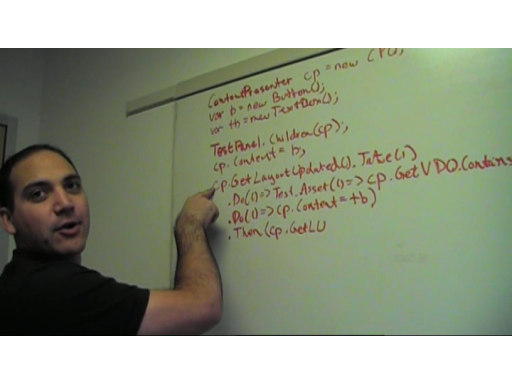 ContentPresenter cp = new CP();
var b = new Button();
var tb = new TextBox();
TestPanel.Children(cp);
cp.Content = b;
cp.GetLayoutUpdated().Take(1)
.Do(()=>Test.Assert(()=>cp.GetVDO.Contains
.Do(()=>cp.Content = tb)
.Then(cp.GetLU